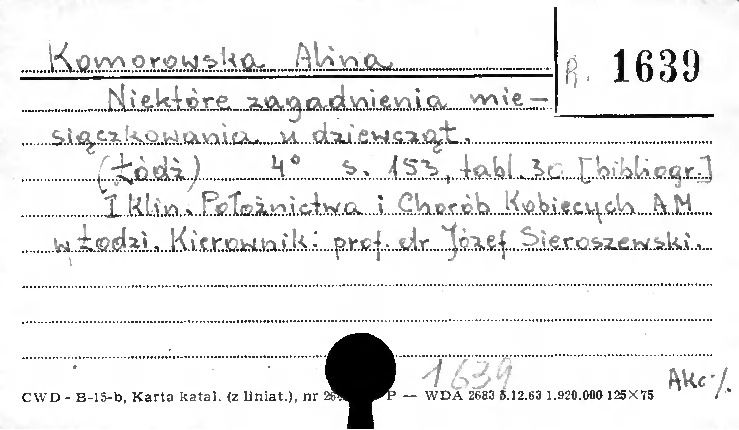 Komorowska Alina
R. 1639
Niektóre zagadnienia mie-
siączkowania u dziewcząt.
(Łódź) 4° s. 153, tabl. 30 [bibliogr.]
I Klin. Położnictwa i Chorób Kobiecych AM
w Łodzi. Kierownik: prof. dr Józef Sieroszewski.
1639
Akc./.
CWD - B-15-b, Karta katal. (z liniat.), nr P — WDA 2683 5.12.63 1.920.000 125×75